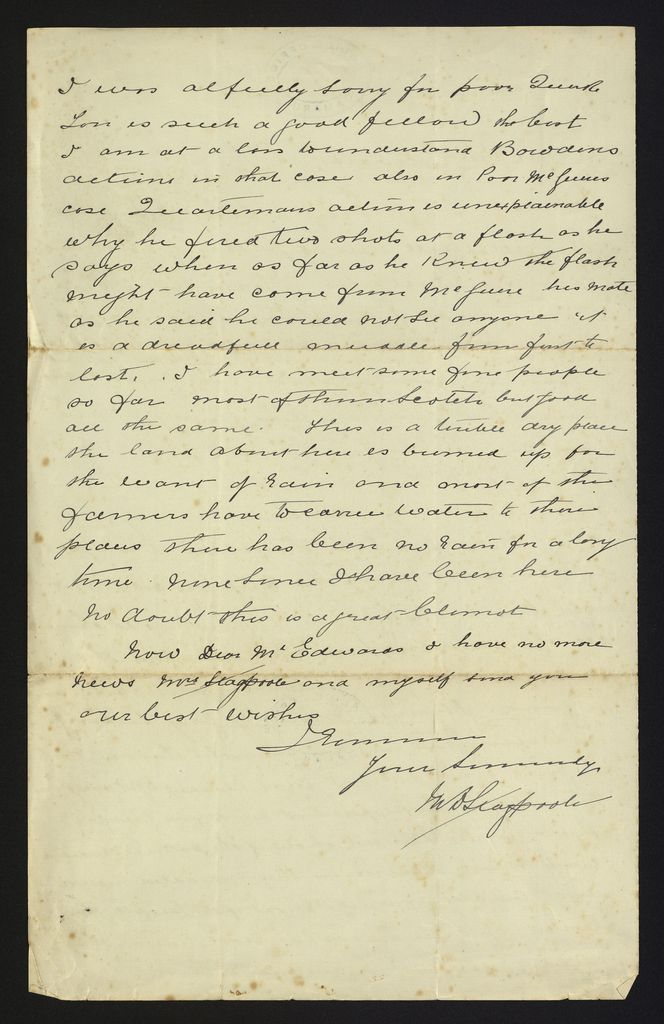 I was alfully sorry for poor
Son is such a good fellow the best
I am at a loss to understand Bowdens
actions in that case also in Poor McGuires
case Quartermans action is unexplainable
why he fired two shots at a flash as he
says when as far as he knew the flash
might have come from McGuire his mate
as he said he could not see anyone it
is a dreadfull muddle from first to
last. I have meet some fine people
so far most of them Scotch but good
all the same. This is a terible dry place
the land about here is burned up for
the want of rain and most of the
farmers have to carrie water to there
places there has been no rain for a long
time. none since I have been here
No doubt this is a great climat
Now Dear Mr Edwards I have no more
news Mrs Stagpoole and myself send you
our best wishes
I Remain
Your Sincerely
M D Stagpoole